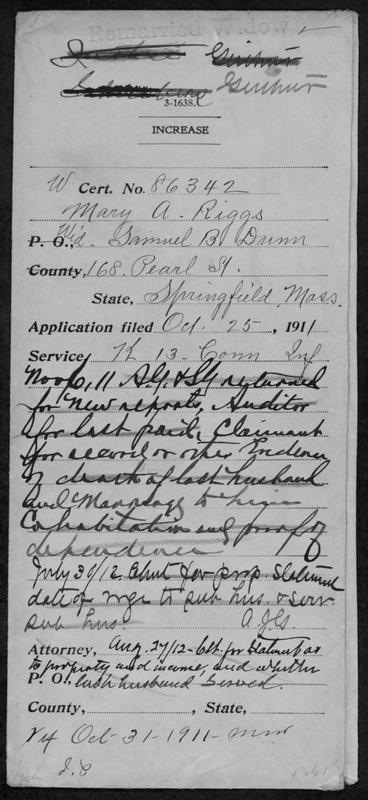 Remarried Widow
3-1638.
INCREASE
W Cert. No. 86342
Mary A. Riggs
P. O., Wid. Samuel B. Dunn
County, 168. Pearl St.
State, Springfield, Mass.
Application filed Oct. 25, 1911
Service K 13- Conn Inf
Nov 6, 11 A.G. & S.G. returned
for new reports, Auditor
for last paid, Claimant
for record or other Evidence
of death of last husband
and Marriage to him
Cohabitation and proof of
dependence
July 30/12. Clmt for prop. Statement
date of mge to sub hus. & serv.
sub hus.
Attorney, Aug. 27/12- Clt. for Statmt as
to property and income, and whether
P. O., husband Served.
County, , State,
Oct-31-1911-